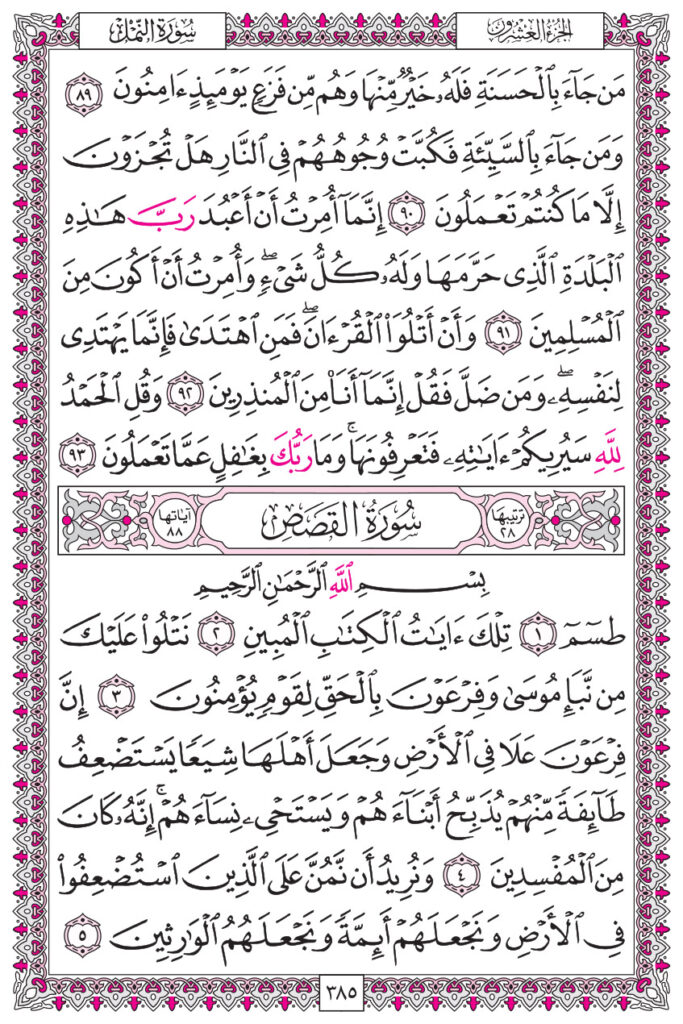 الجزء العشرون
سورة النمل
مَن جَآءَ بِٱلْحَسَنَةِ فَلَهُۥ خَيْرٌ مِّنْهَا وَهُم مِّن فَزَعٍ يَوْمَئِذٍ ءَامِنُونَ ٨٩
وَمَن جَآءَ بِٱلسَّيِّئَةِ فَكُبَّتْ وُجُوهُهُمْ فِى ٱلنَّارِ هَلْ تُجْزَوْنَ
إِلَّا مَا كُنتُمْ تَعْمَلُونَ ٩٠ إِنَّمَآ أُمِرْتُ أَنْ أَعْبُدَ رَبَّ هَٰذِهِ
ٱلْبَلْدَةِ ٱلَّذِى حَرَّمَهَا وَلَهُۥ كُلُّ شَىْءٍ ۖ وَأُمِرْتُ أَنْ أَكُونَ مِنَ
ٱلْمُسْلِمِينَ ٩١ وَأَنْ أَتْلُوَا۟ ٱلْقُرْءَانَ ۖ فَمَنِ ٱهْتَدَىٰ فَإِنَّمَا يَهْتَدِى
لِنَفْسِهِۦ ۖ وَمَن ضَلَّ فَقُلْ إِنَّمَآ أَنَا۠ مِنَ ٱلْمُنذِرِينَ ٩٢ وَقُلِ ٱلْحَمْدُ
لِلَّهِ سَيُرِيكُمْ ءَايَٰتِهِۦ فَتَعْرِفُونَهَا ۚ وَمَا رَبُّكَ بِغَٰفِلٍ عَمَّا تَعْمَلُونَ ٩٣
ترتيبها ٢٨ سورة القصص آياتها ٨٨
بِسْمِ ٱللَّهِ ٱلرَّحْمَٰنِ ٱلرَّحِيمِ
طسٓمٓ ١ تِلْكَ ءَايَٰتُ ٱلْكِتَٰبِ ٱلْمُبِينِ ٢ نَتْلُوا۟ عَلَيْكَ
مِن نَّبَإِ مُوسَىٰ وَفِرْعَوْنَ بِٱلْحَقِّ لِقَوْمٍ يُؤْمِنُونَ ٣ إِنَّ
فِرْعَوْنَ عَلَا فِى ٱلْأَرْضِ وَجَعَلَ أَهْلَهَا شِيَعًا يَسْتَضْعِفُ
طَآئِفَةً مِّنْهُمْ يُذَبِّحُ أَبْنَآءَهُمْ وَيَسْتَحْىِۦ نِسَآءَهُمْ ۚ إِنَّهُۥ كَانَ
مِنَ ٱلْمُفْسِدِينَ ٤ وَنُرِيدُ أَن نَّمُنَّ عَلَى ٱلَّذِينَ ٱسْتُضْعِفُوا۟
فِى ٱلْأَرْضِ وَنَجْعَلَهُمْ أَئِمَّةً وَنَجْعَلَهُمُ ٱلْوَٰرِثِينَ ٥
٣٨٥